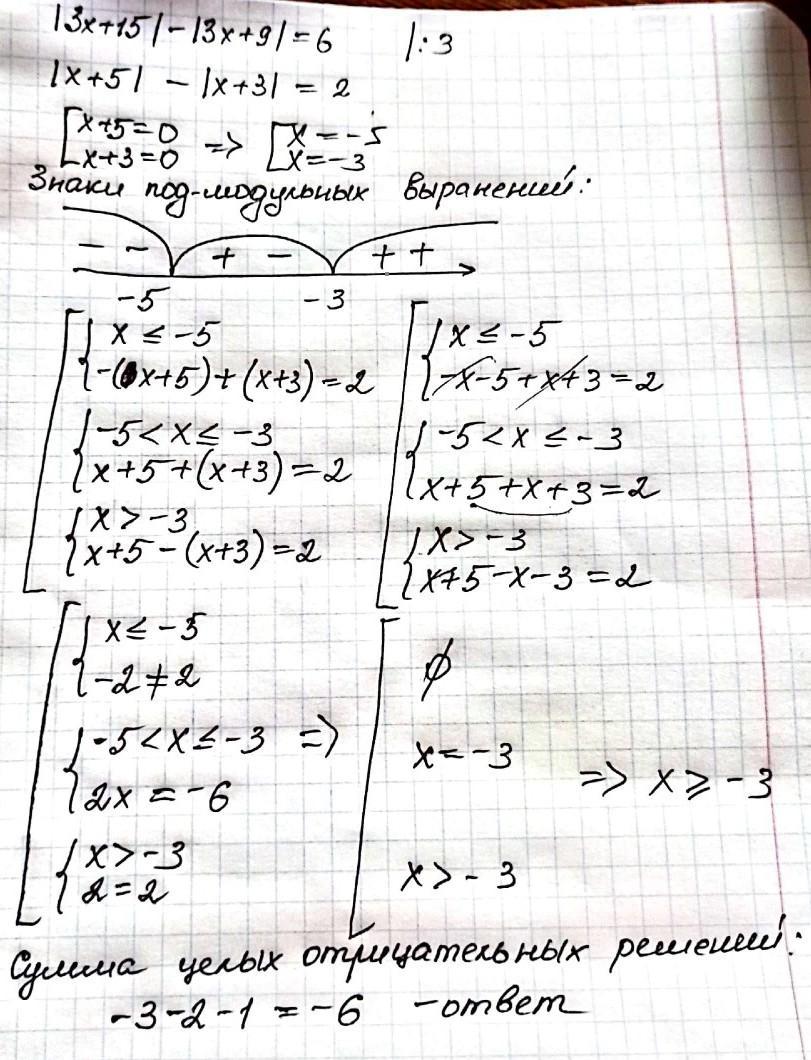 |3x+15|-|3x+9|=6 |:3
|x+5| - |x+3| = 2
[x+5=0 => [x=-5
[x+3=0 [x=-3
Знаки под-модульных выранений:
- - + - + +
-5 -3
{x ≤ -5
{-(x+5)+(x+3)=2
{-5<x≤ -3
{x+5+(x+3)=2
{x>-3
{x+5-(x+3)=2
{x ≤ -5
{-x-5+x+3=2
{-5<x ≤ -3
{x+5+x+3=2
{x>-3
{x+5-x-3=2
{x≤ -5
{-2≠2
{-5<x≤-3 =>
{2x = -6
{x>-3
{2=2
∅
x=-3
x>-3
=> x ≥ -3
Сумма целых отрицательных решений:
-3-2-1 = -6 -ответ